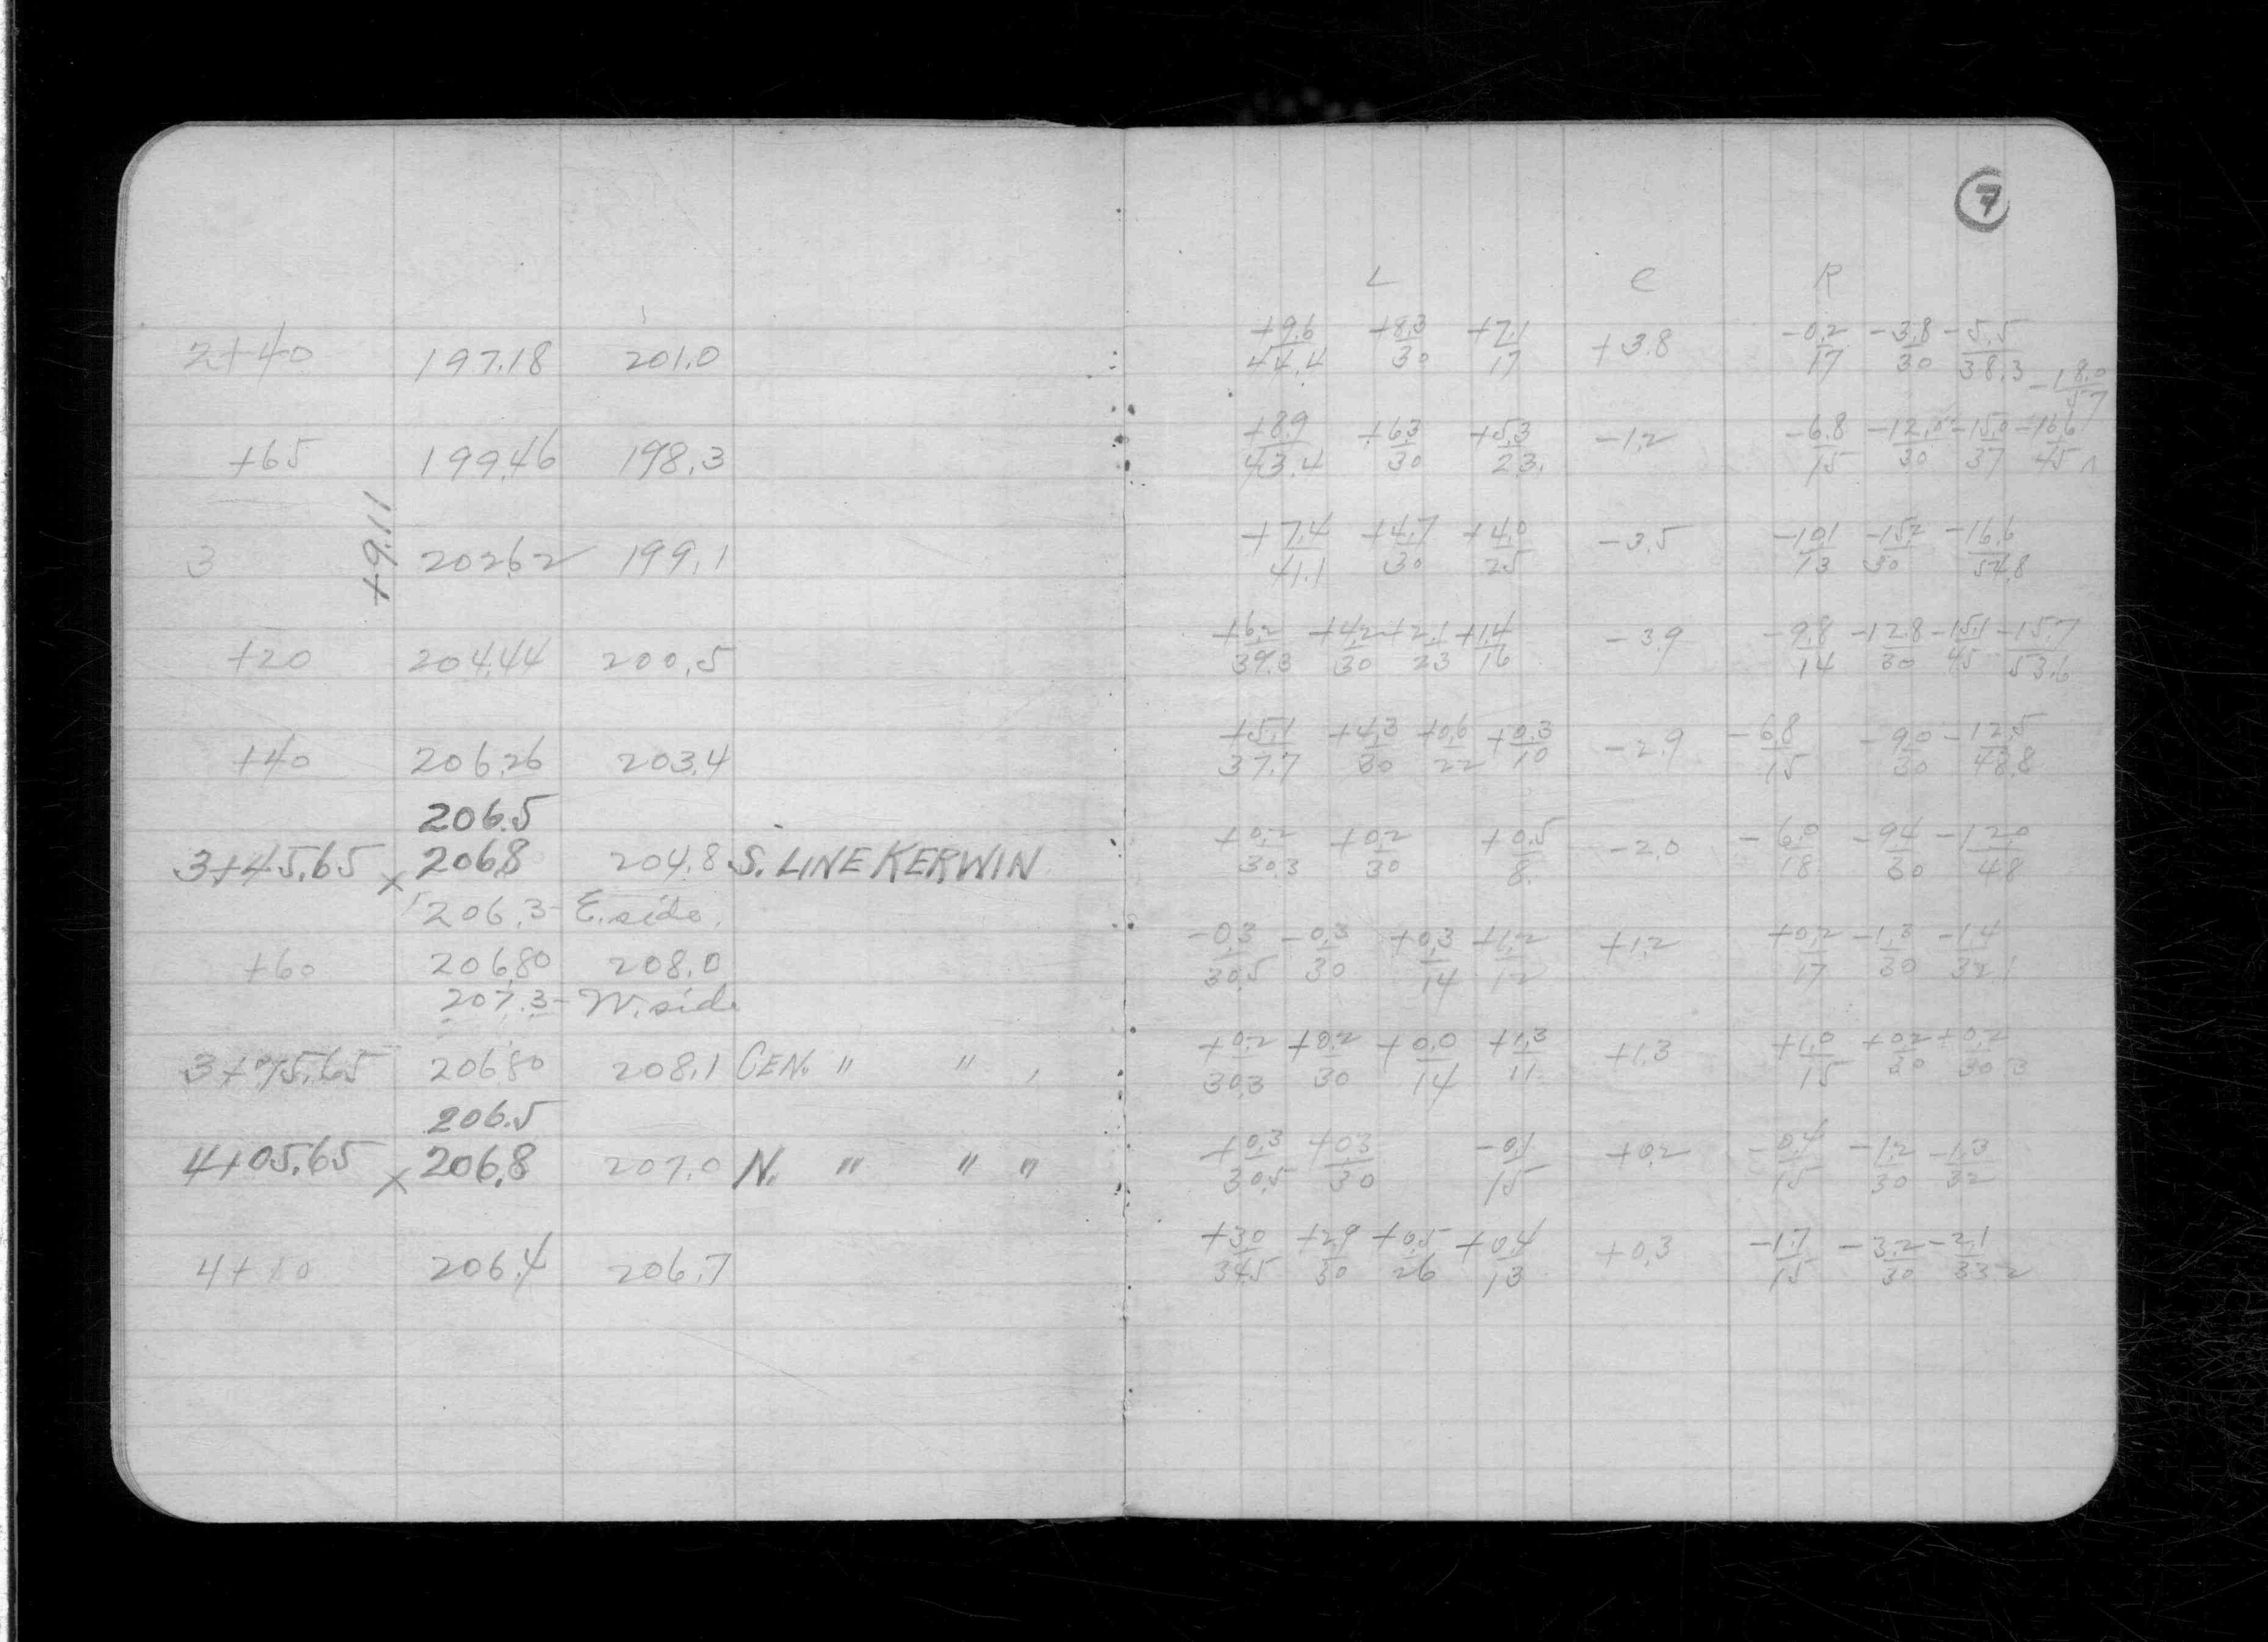 7
L C R
2+40 197.18 201.0 +9.6/44.4 +8.3/30 +7.1/17 +3.8 -0.2/17 -3.8/30 -5.5/38.3
-18.0/57
+65 199.46 198.3 +8.9/43.4 +6.3/30 +5.3/23. -1.2 -6.8/15 -12.0/30 -15.0/37 -16.6/45
+9.11
3 202.62 199.1 +7.4/41.1 +4.7/30 +4.0/25 -3.5 -10.1/13 -15.7/30 -16.6/54.8
+20 204.44 200.5 +6.2/39.3 +4.2/30 +2.1/23 +1.4/16 -3.9 -9.8/14 -12.8/30 -15.1/45 -15.7/53.6
+40 206.26 203.4 +5.1/37.7 +4.3/30 +0.6/22 +0.3/10 -2.9 -6.8/15 -9.0/30 -12.5/48.8
206.5
3+45.65 x 206.8 204.8 S. LINE KERWIN +0.2/30.3 +0.2/30 +0.5/8. -2.0 -6.0/18 -9.4/30 -12.0/48
206.3- E. side.
+60 206.80 208.0 -0.3/30.5 -0.3/30 +0.3/14 +1.2/12 +1.2 +0.2/17 -1.3/30 -1.4/32.1
207.3- W. side
3+75.65 206.80 208.1 CEN. " " +0.2/30.3 +0.2/30 +0.0/14 +1.3/11 +1.3 +1.0/15 +0.2/30 +0.2/30.3
206.5
4+05.65 x 206.8 207.0 N. " " " +0.3/30.5 +0.3/30 -0.1/15 +0.2 -0.4/15 -1.2/30 -1.3/32
4+10 206.4 206.7 +3.0/34.5 +2.9/30 +0.5/26 +0.4/13 +0.3 -1.7/15 -3.2/30 -2.1/33.2